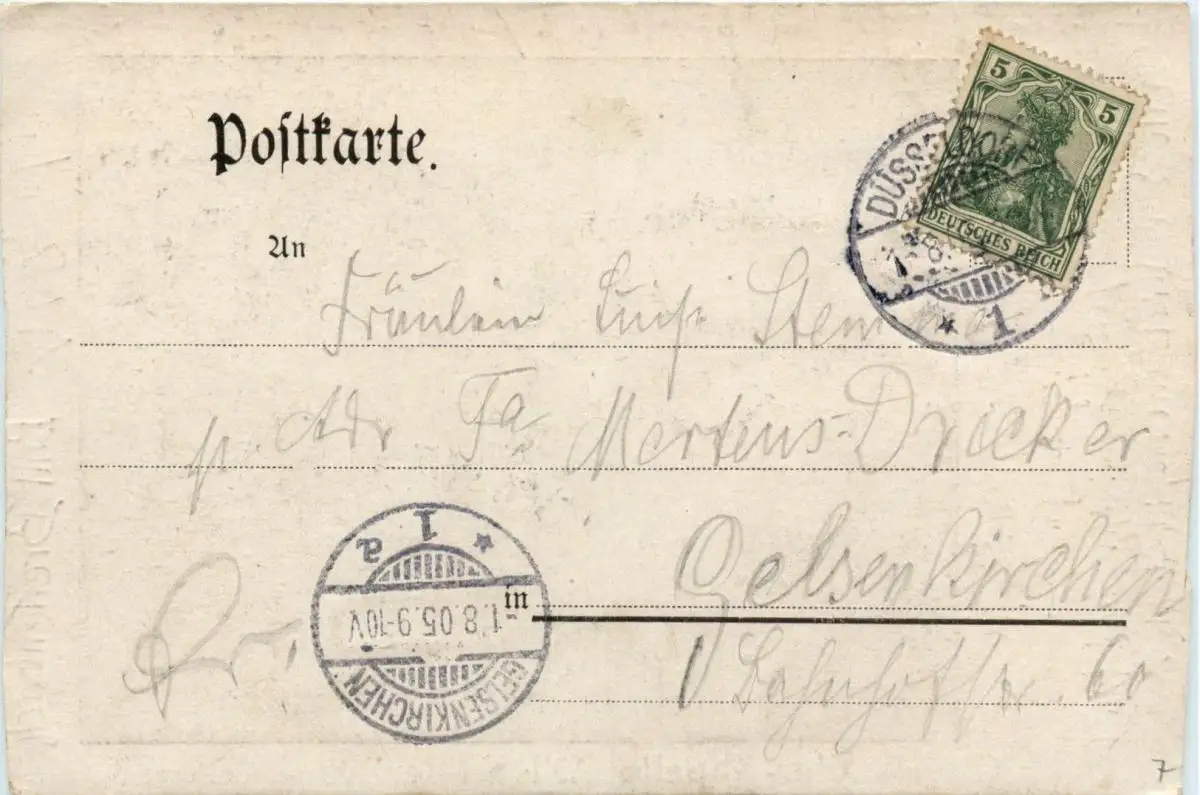 Postkarte.
5 5
DEUTSCHES REICH
DÜSSELDORF
* 1
An
Fräulein Luise
p. Adr Fa Mertens-Drucker
Gelsenkirchen
in
Bahnhofstr. 60
1 a *
-1.8.05.9-10V
GELSENKIRCHEN
7